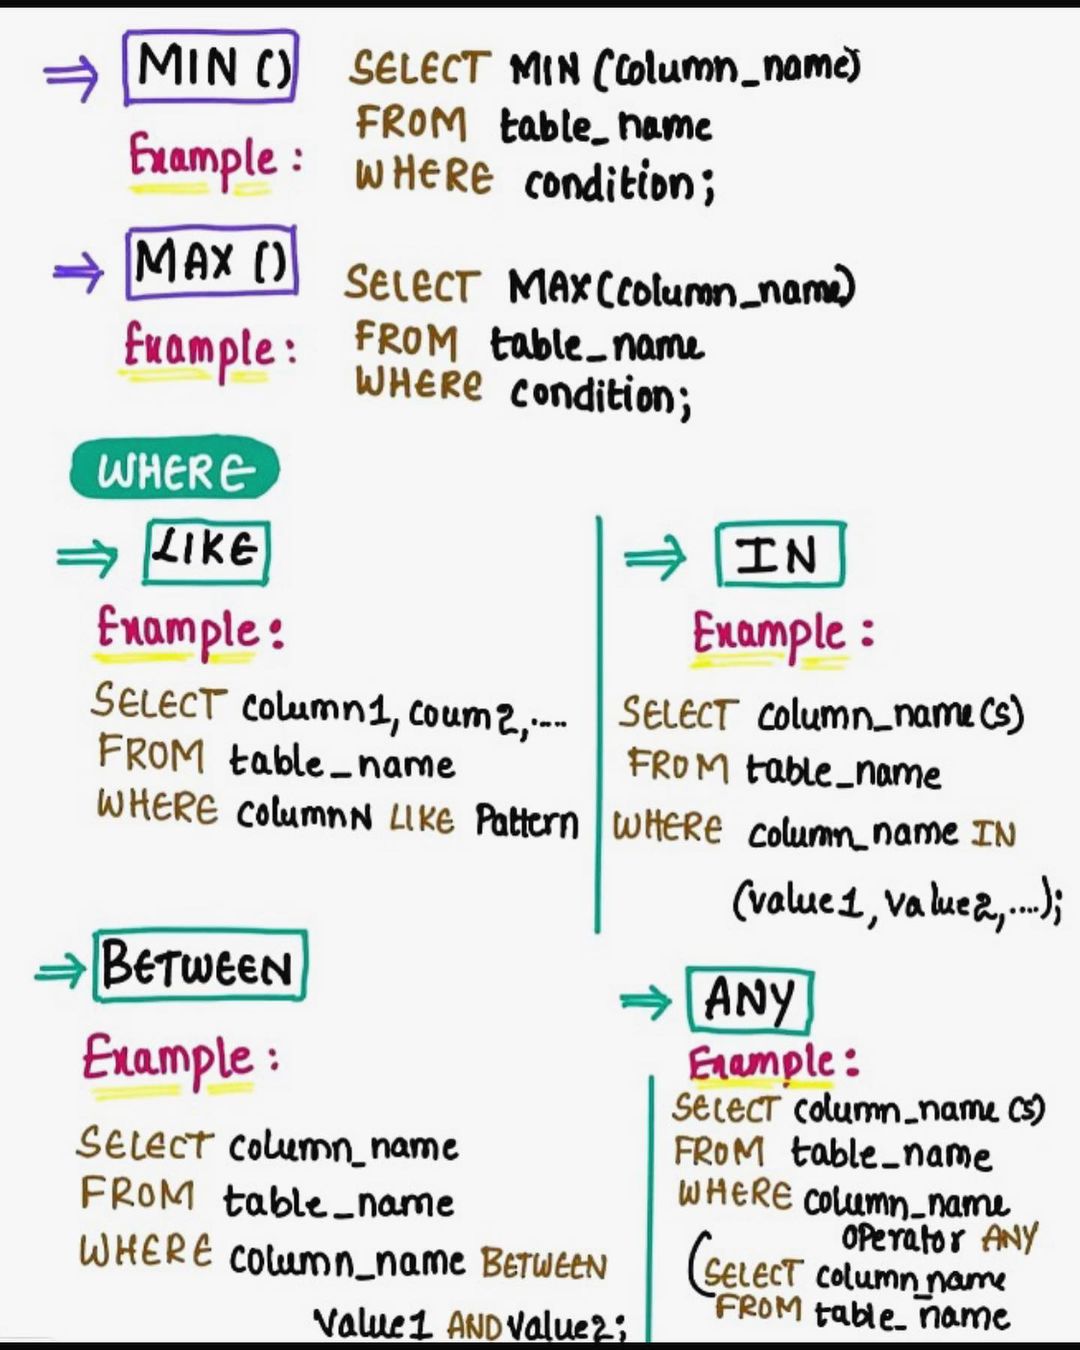 MIN ()
SELECT MIN (column_name)
FROM table_name
Example :
WHERE condition;
MAX ()
SELECT MAX (column_name)
FROM table_name
Example :
WHERE condition;
WHERE
LIKE
Example :
SELECT column1, coum2,....
FROM table_name
WHERE columnN LIKE Pattern
IN
Example :
SELECT column_name(s)
FROM table_name
WHERE column_name IN
(value1, value2,....);
BETWEEN
Example :
SELECT column_name
FROM table_name
WHERE column_name BETWEEN
value1 AND value2;
ANY
Example :
SELECT column_name (s)
FROM table_name
WHERE column_name
operator ANY
(SELECT column_name
FROM table_name